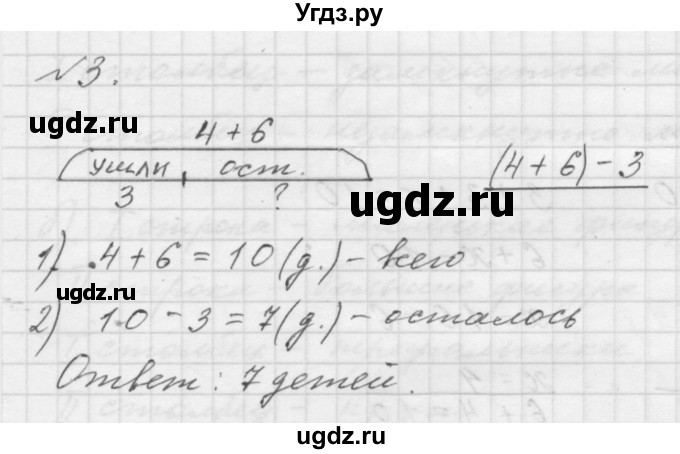 Угдз.ру
№3.
4 + 6
ушли ост.
3 ?
(4 + 6) - 3
1) 4 + 6 = 10 (д.) - всего
2) 10 - 3 = 7 (д.) - осталось
Ответ: 7 детей.
ugdz.ru
ugdz.ru
ugdz.ru
ugdz.ru
ugdz.ru
ugdz.ru